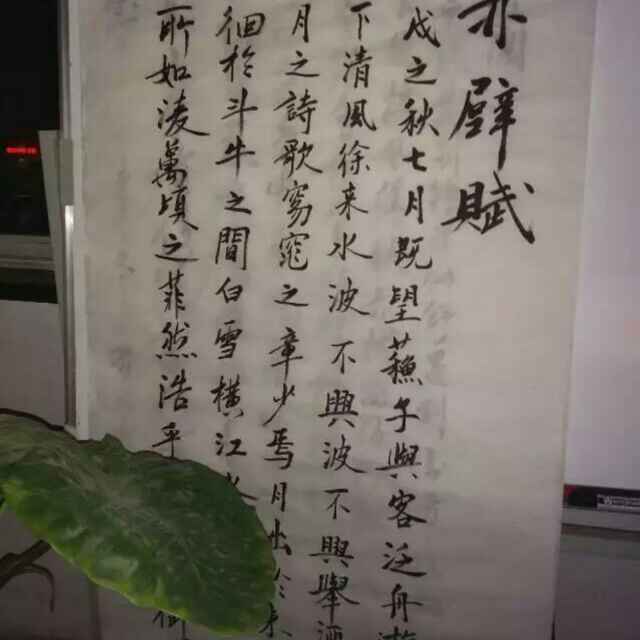 赤壁賦
戌之秋七月既望蘓子與客泛舟
下清風徐来水波不興波不興舉酒
月之詩歌窈窕之章少焉月出於東
徊於斗牛之間白雪橫江水
所如凌萬頃之茫然浩乎